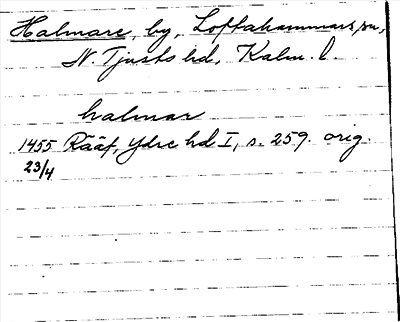 Halmare, by, Loftahammars sn,
N. Tjusts hd, Kalm. l.
halmar
1455 Rääf, Ydre hd I, s. 259. orig.
23/4